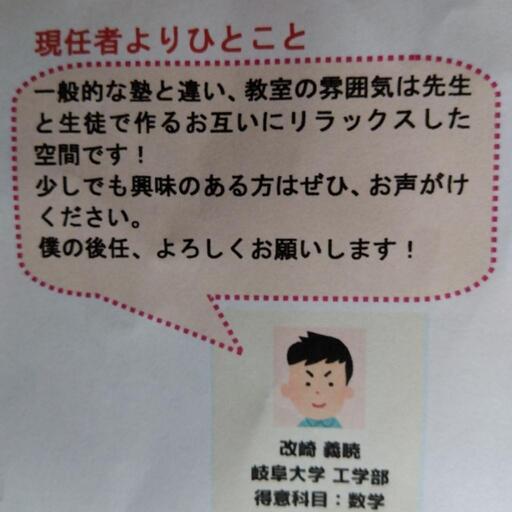 現任者よりひとこと
一般的な塾と違い、教室の雰囲気は先生
と生徒で作るお互いにリラックスした
空間です！
少しでも興味のある方はぜひ、お声がけ
ください。
僕の後任、よろしくお願いします！
改崎 義暁
岐阜大学 工学部
得意科目：数学